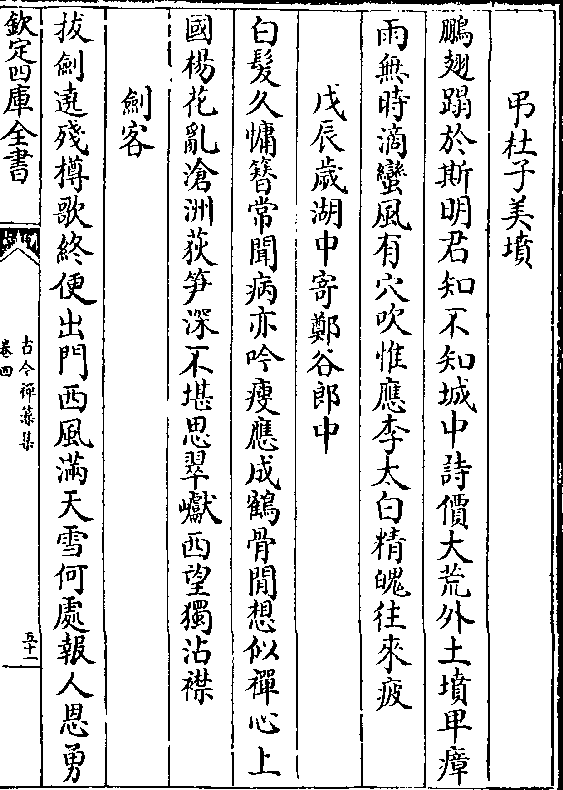 弔杜子美墳
鵬翅蹋於斯明君知不知城中詩價大荒外土墳甲瘴
雨無時滴蠻風有穴吹惟應李太白精魄往來疲
戊辰歲湖中寄鄭谷郎中
白髮久慵簪常聞病亦吟瘦應成鶴骨閒想似禪心上
國楊花亂滄洲荻笋深不堪思翠巘西望獨沾襟
劍客
拔劍遶殘樽歌終便出門西風滿天雪何處報人恩勇
欽定四庫全書
古今禪藻集
卷四
五十一